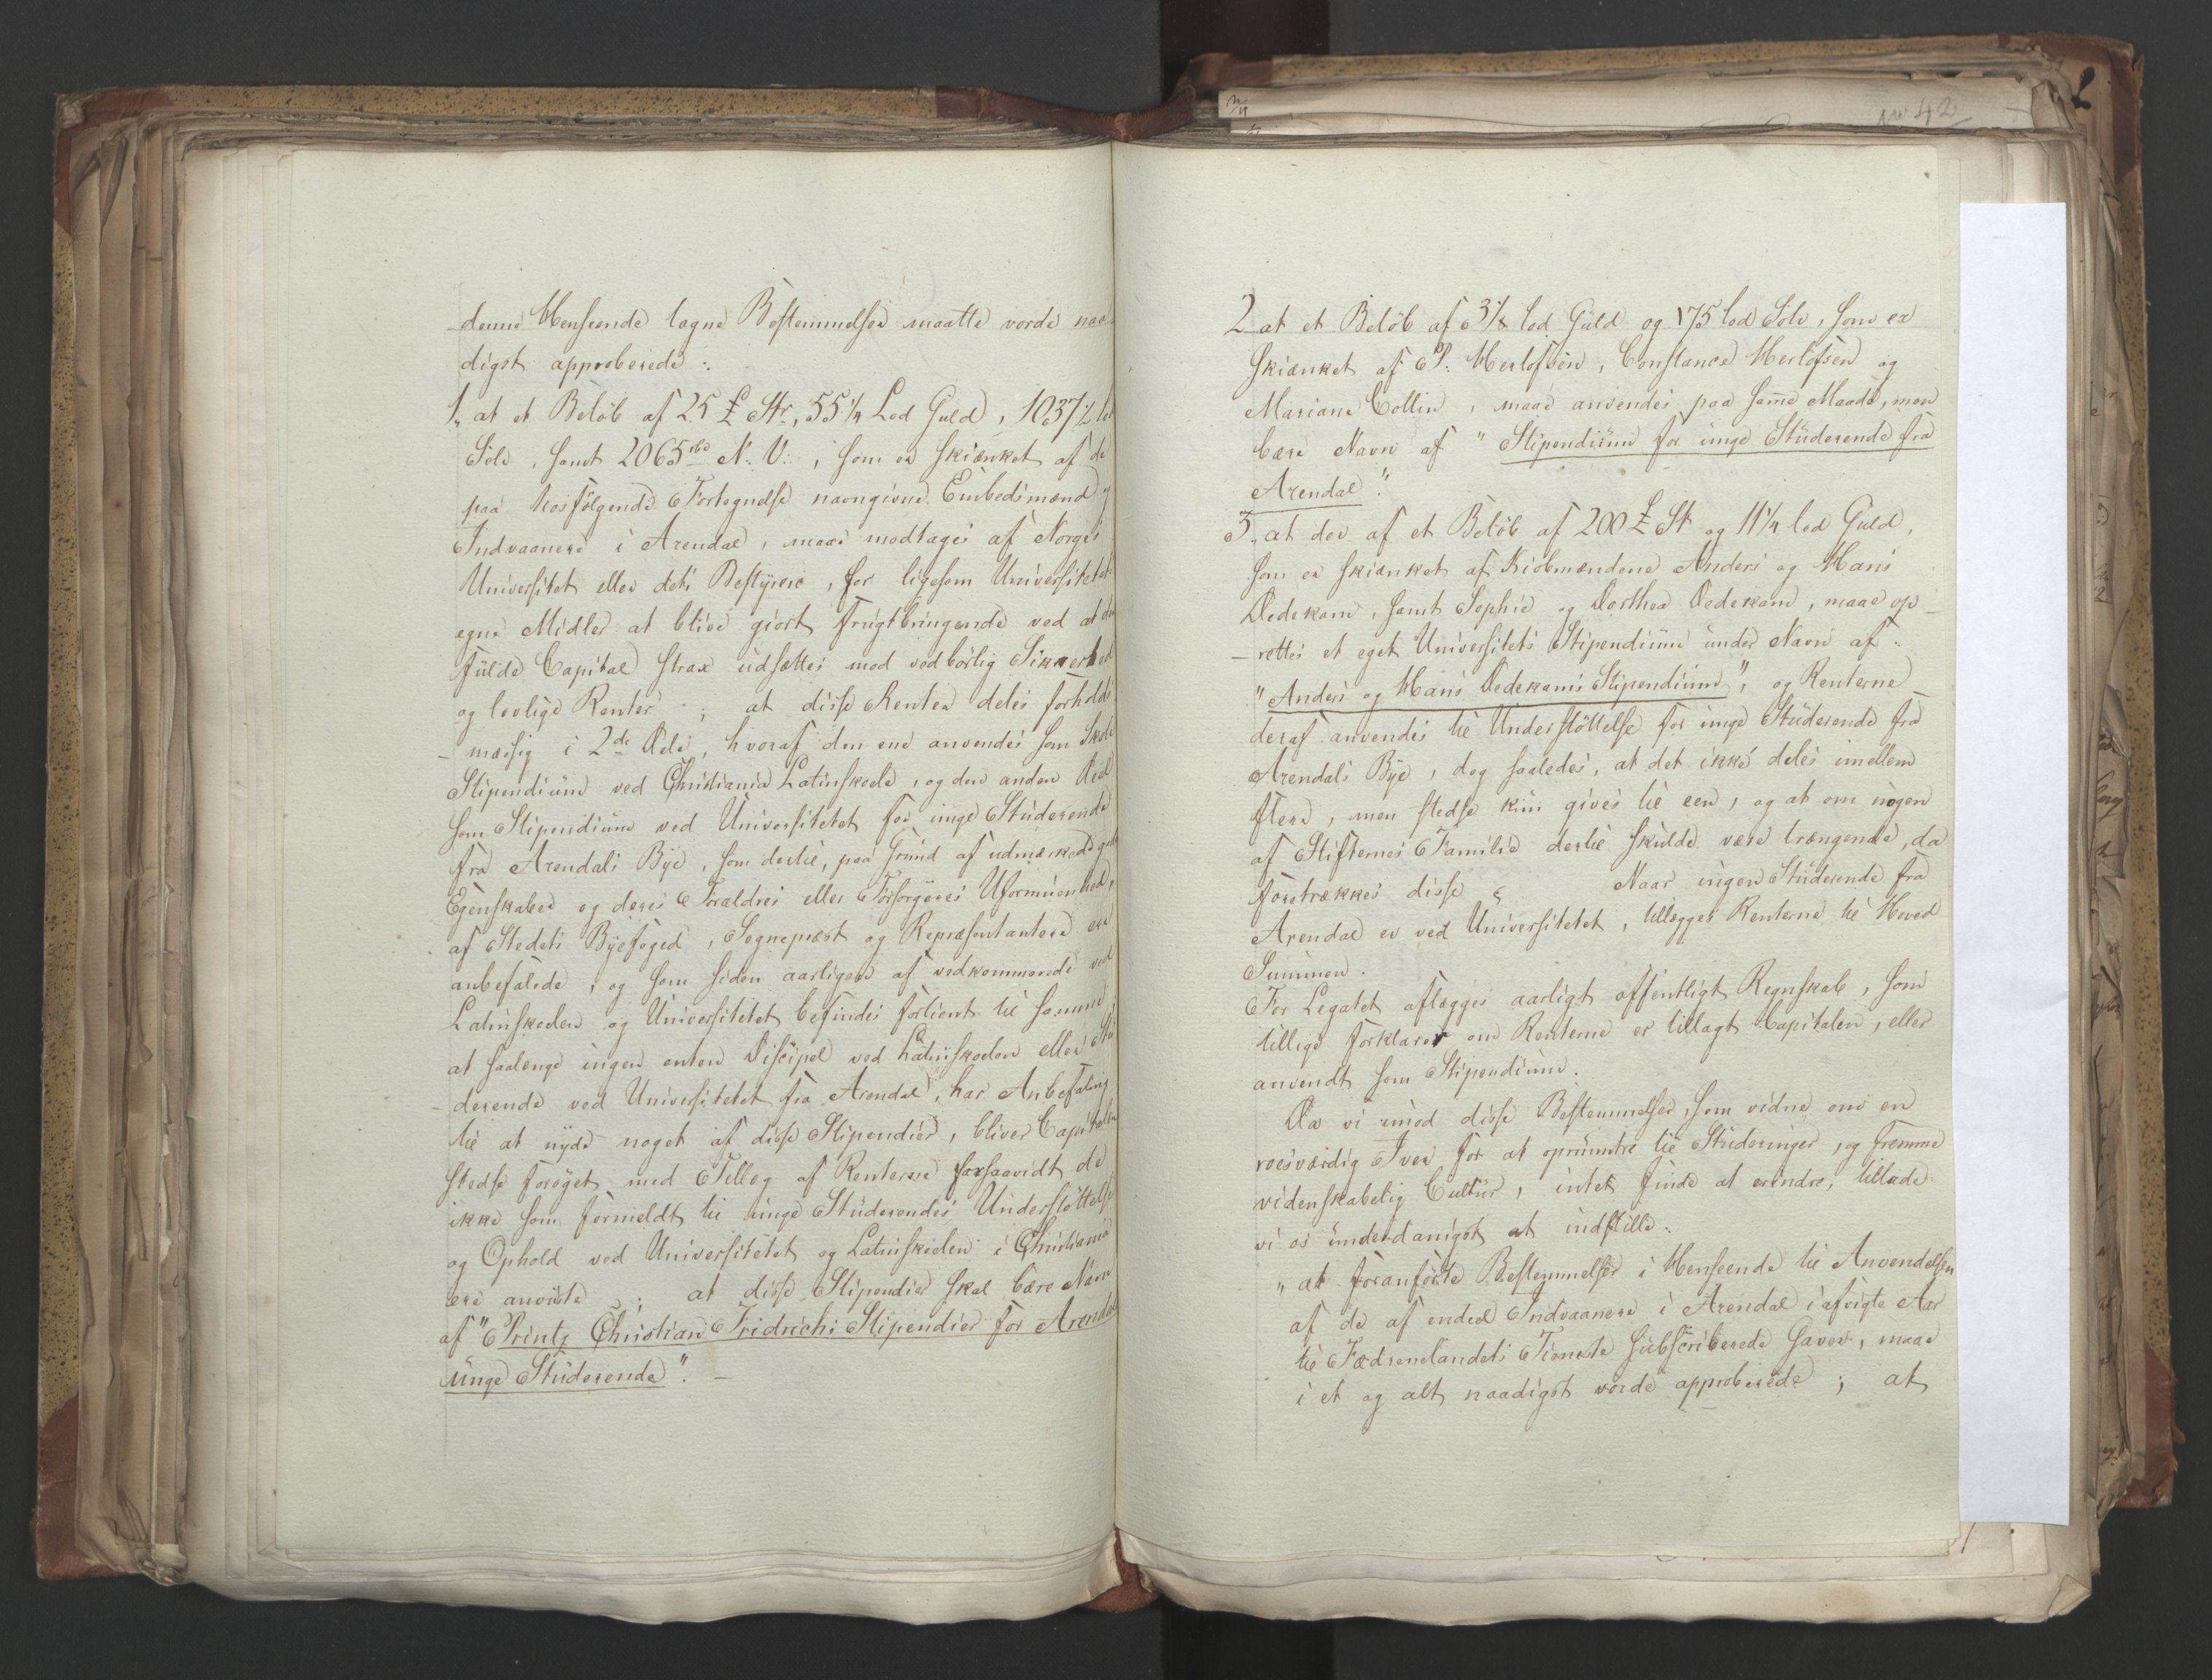 denne Henseende tagne Bestemmelser maatte vorde naa-
digst approberede:
1, at et Beløb af 25 £ Str, 55 1/4 Lod Guld, 1037 1/2 lod
Sølv, samt 2065 rbd N. V:, som er skiænket af de
paa hosfølgende Fortegnelse navngivne Embedsmænd og
Indvaanere i Arendal, maae modtages af Norges
Universitet eller dets Bestyrere, for ligesom Universitetets
egne Midler at blive giort frugtbringende ved at den
fulde Capital strax udsættes mod vedbørlig Sikkerhed
og lovlige Renter; at disse Renter deles forholds
-mæssig i 2de Dele, hvoraf den ene anvendes som Skole
Stipendium ved Christiania Latinskole, og den anden Deel
som Stipendium ved Universitetet for unge Studerende
fra Arendals Bye, som dertil, paa Grund af udmærkede gode
Egenskaber og deres Forældres eller Forsørgeres Uformuenhed,
af Stedets Byefoged, Sognepræst og Repræsentantere ere
anbefalede, og som siden aarligen af vedkommende ved
Latinskolen og Universitetet befindes fortient til samme;
at saalenge ingen enten Discipel ved Latinskolen eller Stu
-derende ved Universitetet fra Arendal, har Anbefaling
til at nyde noget af disse Stipendier, bliver Capitalen
stedse forøget med Tillæg af Renterne forsaavidt de
ikke som formeldt til unge Studerendes Understøttelse
og Ophold ved Universitetet og Latinskolen i Christiania
ere anviste; at disse Stipendier skal bære Navn
af "Printz Christian Fridrichs Stipendier for Arendals
unge Studerende". -
No 42
2 at et Beløb af 3 1/8 lod Guld og 175 lod Sølv, som er
skiænket af P. Herlofsen, Constance Herlofsen og
Mariane Collin, maae anvendes paa samme Maade, men
bære Navn af "Stipendium for unge Studerende fra
Arendal".
3, at der af et Beløb af 200 £ St og 11 1/4 lod Guld,
som er skiænket af Kiøbmændene Anders og Hans
Dedekam, samt Sophie og Dorthea Dedekam, maae op-
-rettes et eget Universitets Stipendium under Navn af:
"Anders og Hans Dedekams Stipendium", og Renterne
deraf anvendes til Understøttelse for unge Studerende fra
Arendals Bye, dog saaledes, at det ikke deles imellem
flere, men stedse kun gives til een, og at om nogen
af Stifternes Familie dertil skulde være trængende, da
foretrækkes disse Naar ingen Studerende fra
Arendal er ved Universitetet, tillægges Renterne til Hoved
Summen.
For Legatet aflægges aarligt offentligt Regnskab, som
tillige forklarer om Renterne er tillagt Capitalen, eller
anvendt som Stipendium.
Da vi imod disse Bestemmelser, som vidne om en
roesværdig Iver for at opmuntre til Studeringer, og fremme
videnskabelig Cultur, intet finde at erindre, tillade
vi os underdanigst at indstille:
"at foranførte Bestemmelser i Henseende til Anvendelsen
af de af endeel Indvaanere i Arendal i afvigte Aar
til Fædrenelandets Tieneste subscriberede Gaver, maae
i et og alt naadigst vorde approberede; at